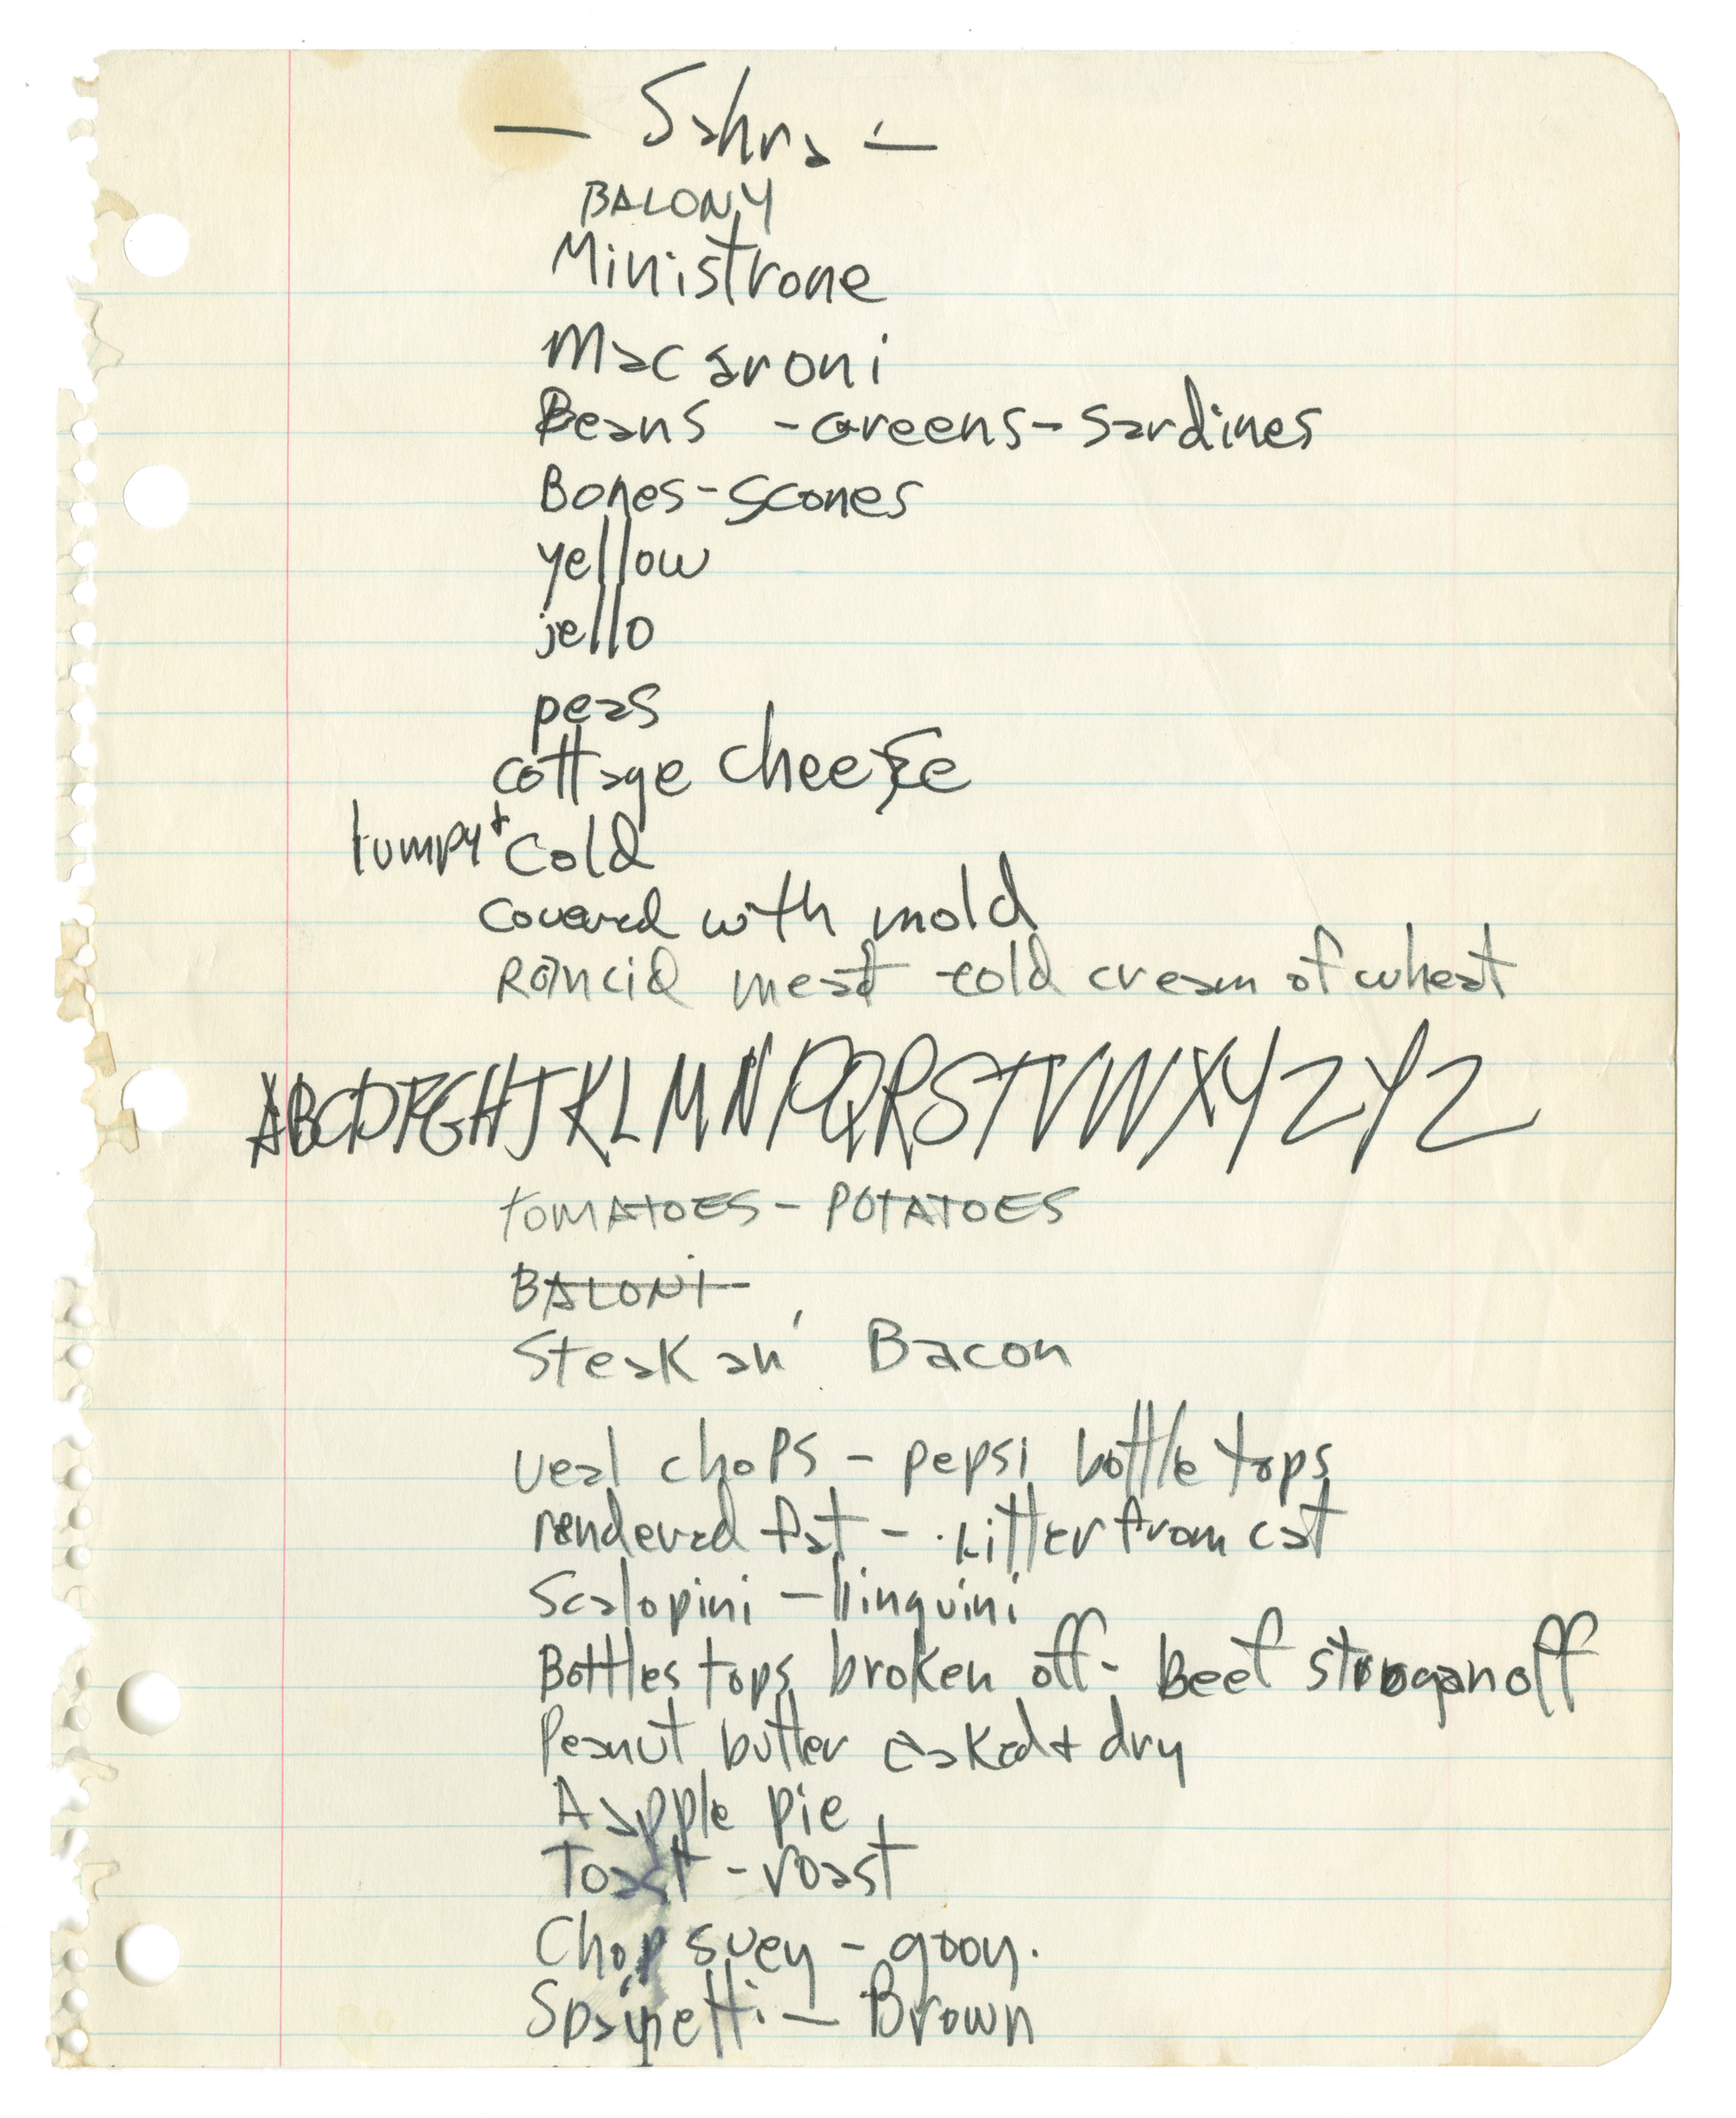 — Sahra —
BALONY
Ministrone
Macaroni
Beans - Greens - Sardines
Bones - Scones
yellow
jello
peas
cottage cheese
lumpy + cold
covered with mold
Rancid meat cold cream of wheat
ABCDFGHJKLMNPQRSTVWXYZYZ
TOMATOES - POTATOES
BALONI
Steak an' Bacon
veal chops - pepsi bottle tops
rendered fat - kitter from cat
Scalopini - linguini
Bottles tops broken off - beef stroganoff
Peanut butter caked + dry
A apple pie
Toast - roast
Chop suey - gooy.
Spaghetti — Brown